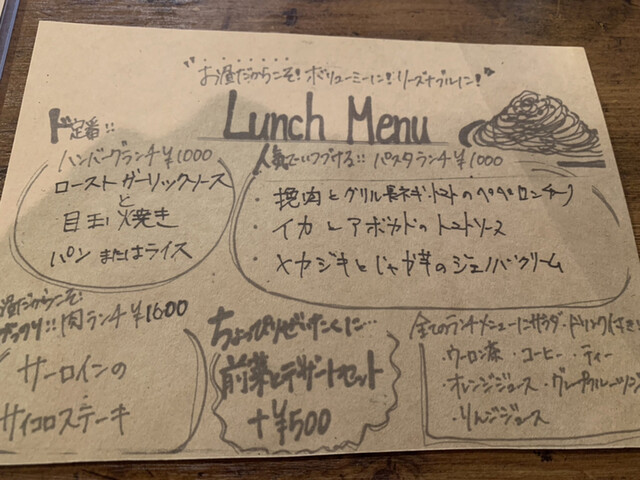 お酒だからこそ！ボリューミーに！リーズナブルに！
Lunch Menu
ド定番!!
ハンバーグランチ¥1000
ローストガーリックソース
と
目玉焼き
パン またはライス
パスタランチ¥1000
・挽肉とグリル長ネギ・トマトのペペロンチーノ
・イカとアボカドのトマトソース
・メカジキとじゃが芋のジェノバクリーム
酒だからこそ!
肉ランチ¥1600
サーロインの
サイコロステーキ
ちょっぴりぜいたくに…
前菜とデザートセット
+¥500
全てのランチメニューにサラダ・ドリンク
・ウーロン茶 ・コーヒー ・ティー
・オレンジジュース ・グレープフルーツジ
・りんごジュース